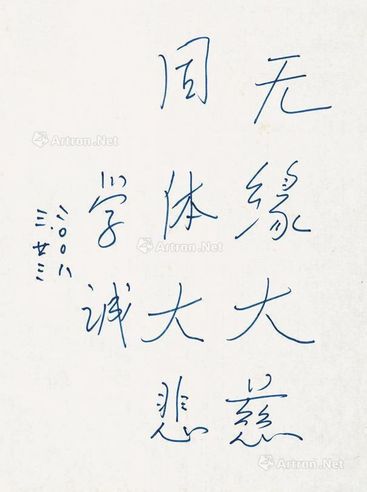 无缘大慈
同体大悲
学诚
二〇〇八
三.廿三
Artron.Net
Artron.Net
Artron.Net